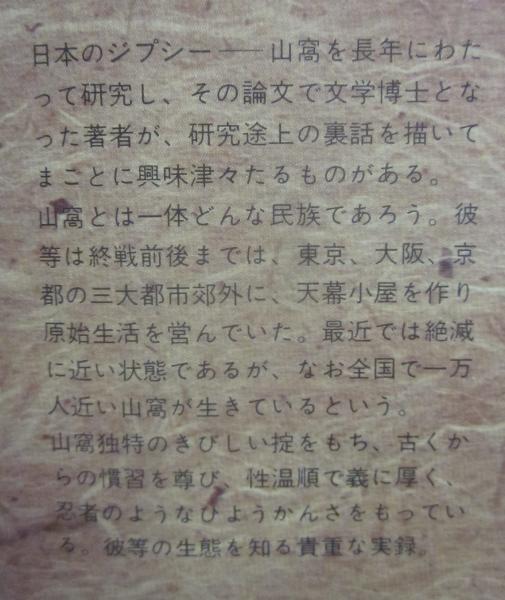 日本のジプシー――山窩を長年にわた
って研究し、その論文で文学博士とな
った著者が、研究途上の裏話を描いて
まことに興味津々たるものがある。
山窩とは一体どんな民族であろう。彼
等は終戦前後までは、東京、大阪、京
都の三大都市郊外に、天幕小屋を作り
原始生活を営んでいた。最近では絶滅
に近い状態であるが、なお全国で一万
人近い山窩が生きているという。
山窩独特のきびしい掟をもち、古くか
らの慣習を尊び、性温順で義に厚く、
忍者のようなひょうかんさをもってい
る。彼等の生態を知る貴重な実録。